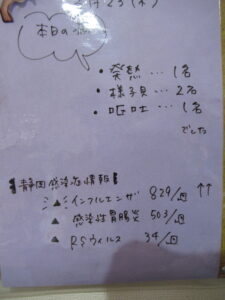 23(木)
本日の
・発熱…1名
・様子見…2名
・嘔吐…1名
でした
静岡感染症情報
▲インフルエンザ 829/週 ↑↑
▲感染性胃腸炎 503/週
▲RSウィルス 34/週